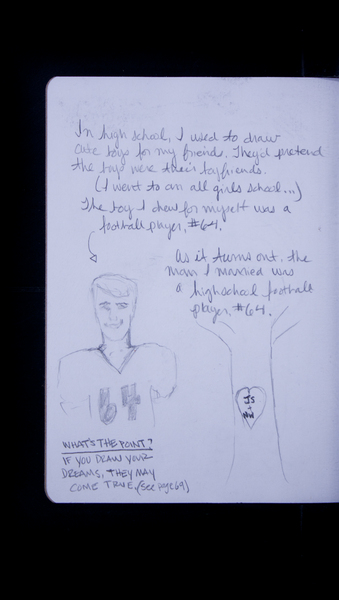 In high school, I used to draw
cute boys for my friends. They'd pretend
the boys were their boyfriends.
(I went to an all girls school...)
The boy I drew for myself was a
football player, #64.
As it turns out, the
man I married was
a highschool football
player, #64.
64
JS
+
NW
WHAT'S THE POINT?
IF YOU DRAW YOUR
DREAMS, THEY MAY
COME TRUE. (see page 69)